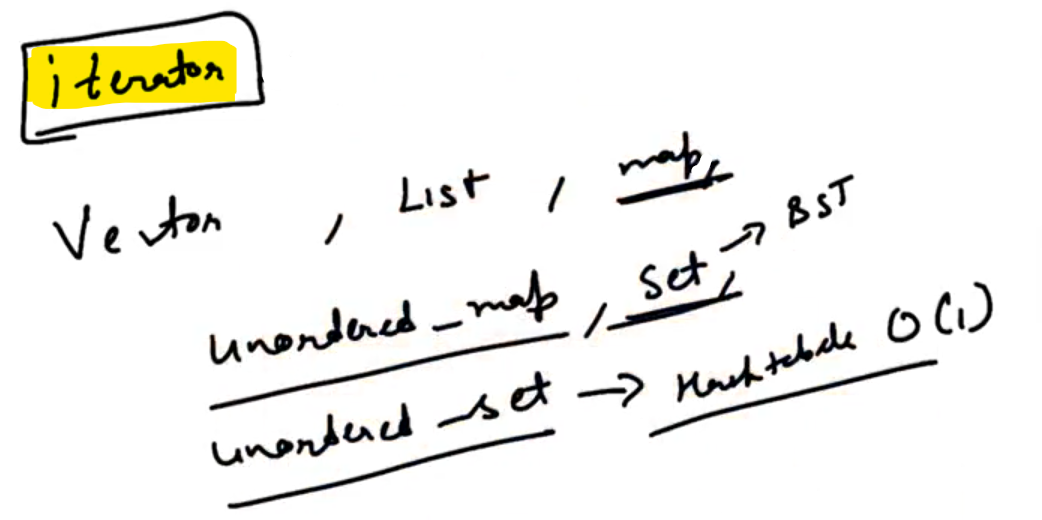 iterator
Vector , List , map,
unordered_map , set, → BST
unordered_set → Hashtable O(1)